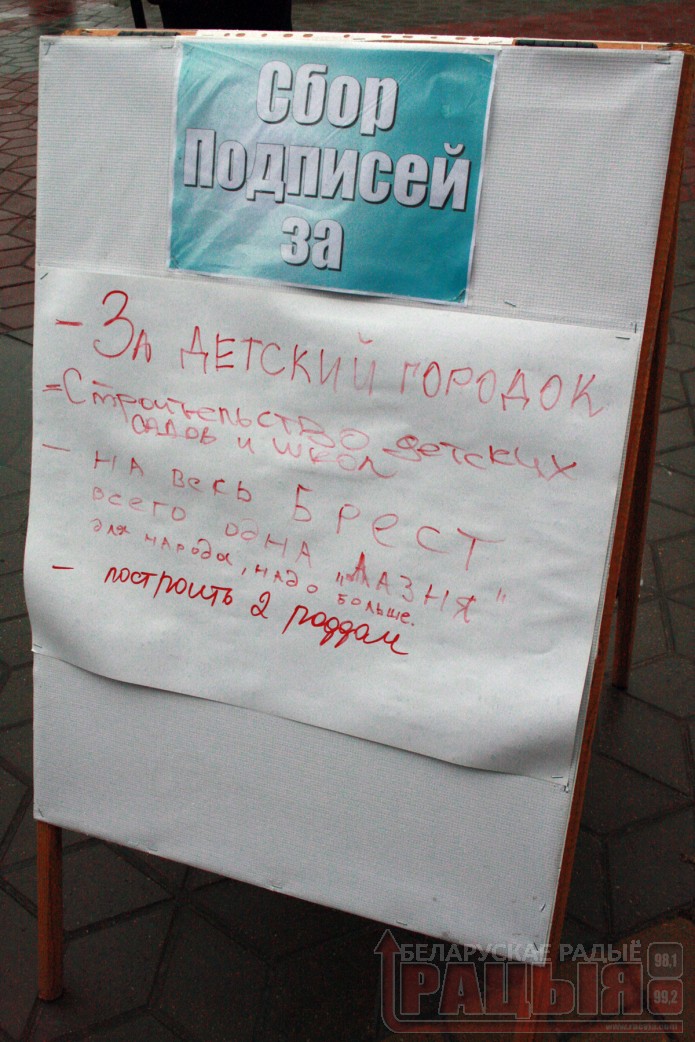 Сбор
Подписей
за
- За ДЕТСКИЙ ГОРОДОК
= Строительство детских
садов и школ
- НА весь БРЕСТ
всего одна "ЛАЗНЯ"
для народа, надо больше.
- построить 2 роддом
БЕЛАРУСКАЕ РАДЫЁ
РАЦЫЯ
98,1
99,2
www.racyja.com